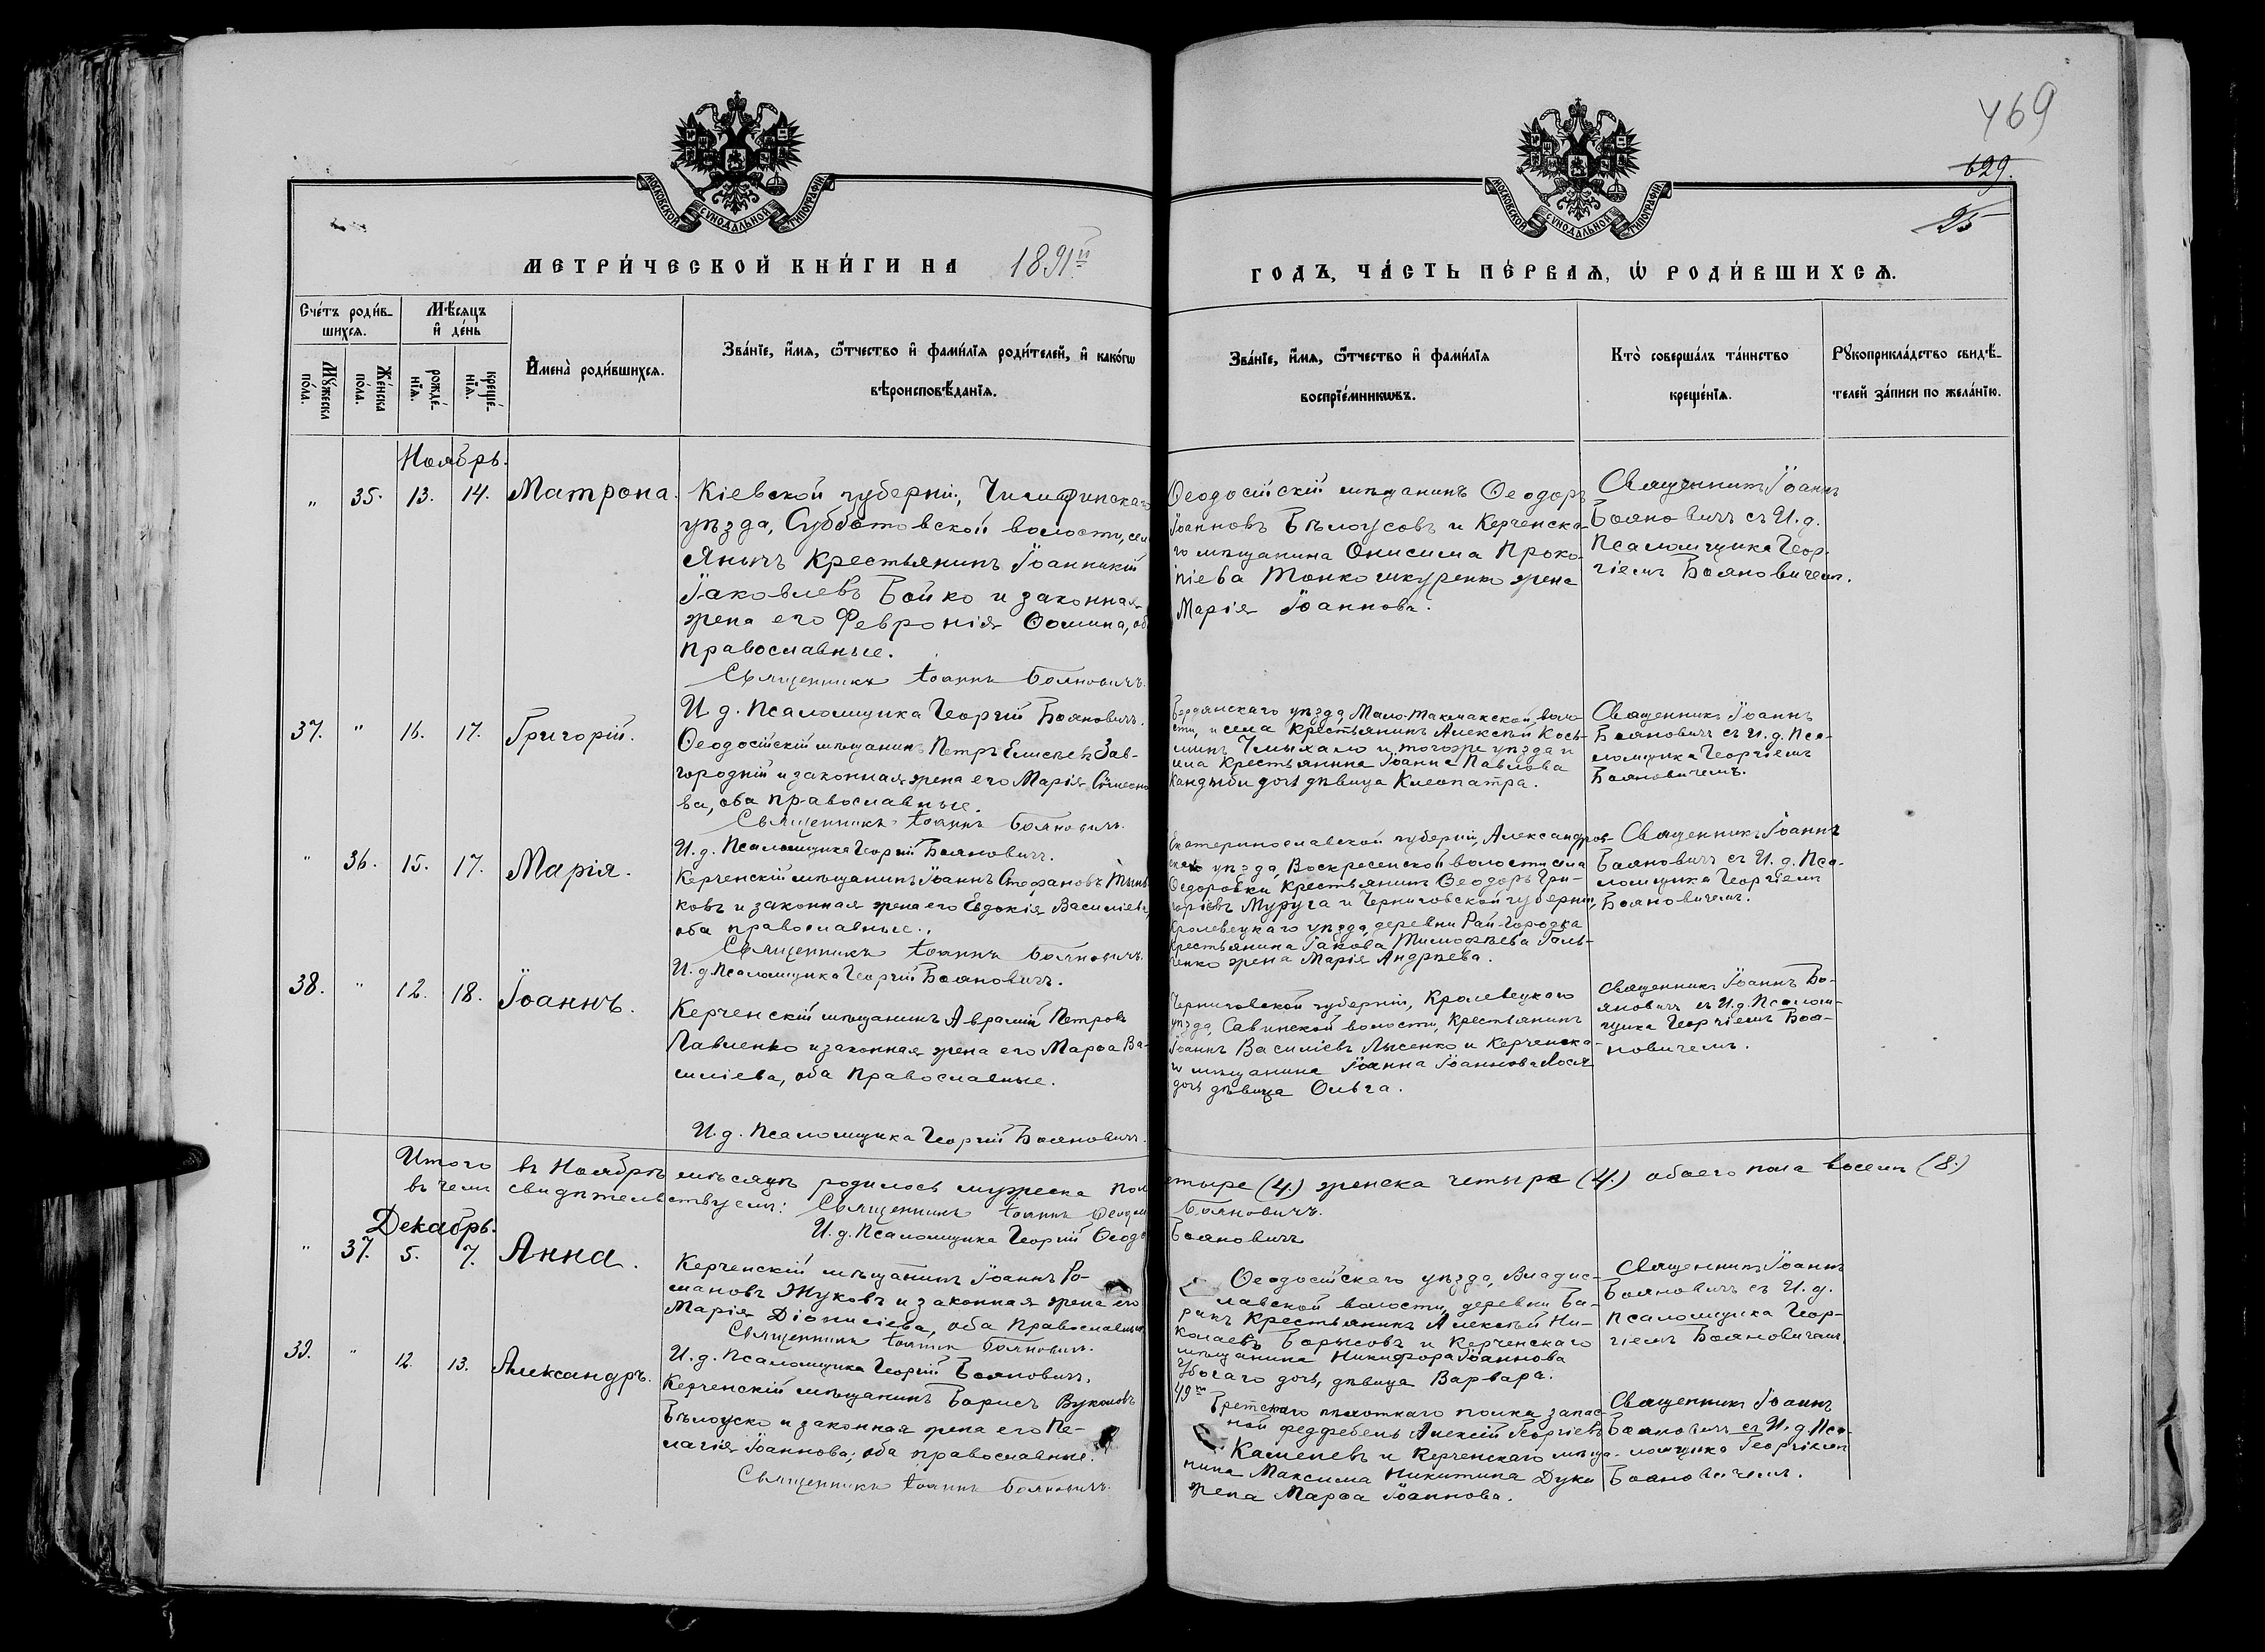 469
629.
25
МОСКОВСКОЙ СѴНОДАЛЬНОЙ ТИПОГРАФІИ
МОСКОВСКОЙ СѴНОДАЛЬНОЙ ТИПОГРАФІИ
МЕТРИ́ЧЕСКОЙ КНИ́ГИ НА 1891й
ГОДЪ, ЧА́СТЬ ПЕ́РВАѦ, Ѽ РОДИ́ВШИХСѦ.
Сче́тъ роди́в-
шихсѧ.
Мꙋ́жеска
по́ла.
Же́нска
по́ла.
Мѣ́сѧцъ
и҆ де́нь
рожде́-
нїѧ.
креще́-
нїѧ.
И҆мена̀ роди́вшихсѧ.
Зва́нїе, и҆́мѧ, ѻ҆́тчество и҆ фами́лїѧ роди́телей, и҆ како́гѡ
вѣроисповѣ́данїѧ.
Зва́нїе, и҆́мѧ, ѻ҆́тчество и҆ фами́лїѧ
воспрїе́мникѡвъ.
Кто̀ соверша́лъ та́инство
креще́нїѧ.
Рꙋкоприкла́дство свидѣ́-
телей за́писи по жела́нїю.
Ноябрь.
„ 35. 13. 14. Матрона.
Кіевской губерніи, Чигиринскаго
уѣзда, Субботовской волости, сел
Яничъ крестьянинъ Іоанникій
Іаковлевъ Бойко и законная
жена его Февронія Ѳомина, об
православные.
Священникъ Іоаннъ Бояновичъ.
И. д. Псаломщика Георгій Бояновичъ.
Ѳеодосійскій мѣщанинъ Ѳеодоръ
Іоанновъ Бѣлоусовъ и Керченска-
го мѣщанина Онисима Проко-
піева Тонкошкуренко жена
Марія Іоаннова.
Священникъ Іоаннъ
Бояновичъ съ И. д.
Псаломщика Геор-
гіемъ Бояновичемъ.
37. „ 16. 17. Григорій.
Ѳеодосійскій мѣщанинъ Петръ Елисеевъ Зав-
городній и законная жена его Марія Сѵмеоно
ва, оба православные.
Священникъ Іоаннъ Бояновичъ.
И. д. Псаломщика Георгій Бояновичъ.
Бердянскаго уѣзда, Мало-Токмакской воло
сти, и села крестьянинъ Алексѣй Косъ-
минъ Чмыхало и тогоже уѣзда и
села крестьянина Іоанна Павлова
Кандыби дочь дѣвица Клеопатра.
Священникъ Іоаннъ
Бояновичъ съ И. д. Пса-
ломщика Георгіемъ
Бояновичемъ.
„ 36. 15. 17. Марія.
Керченскій мѣщанинъ Іоаннъ Стефановъ
ковъ и законная жена его Евдокія Василіева,
оба православные.
Священникъ Іоаннъ Бояновичъ.
И. д. Псаломщика Георгій Бояновичъ.
Екатеринославской губерніи, Александров-
скаго уѣзда, Воскресенской волости села
Ѳедоровки крестьянинъ Ѳеодоръ Гри-
горіевъ Муруга и Черниговской губерніи,
Кролевецкаго уѣзда, деревни Рай-Городка
крестьянина Іакова Тимоѳѣева Галь-
ченко жена Марія Андрѣева.
Священникъ Іоаннъ
Бояновичъ съ И. д. Пса-
ломщика Георгіемъ
Бояновичемъ.
38. „ 12. 18. Іоаннъ.
Керченскій мѣщанинъ Аврамій Петровъ
Павленко и законная жена его Марѳа Ва-
силіева, оба православные.
И. д. Псаломщика Георгій Бояновичъ.
Черниговской губерніи, Кролевецкаго
уѣзда, Савинской волости, крестьянинъ
Іоаннъ Василіевъ Лысенко и Керченска-
го мѣщанина Іоанна Іоаннова Лося
дочь дѣвица Ольга.
Священникъ Іоаннъ Бо-
яновичъ съ И. д. Псалом-
щика Георгіемъ Боя-
новичемъ.
Итого въ Ноябрѣ мѣсяцѣ родилось мужеска пол етыре (4.) женска четыре (4.) обоего пола восемь (8.)
въ чемъ свидѣтельствуемъ: Священникъ Іоаннъ Ѳеодо Бояновичъ.
И. д. Псаломщика Георгій Ѳеодо Бояновичъ
Декабрь.
„ 37. 5. 7. Анна.
Керченскій мѣщанинъ Іоаннъ Ро-
мановъ Жуковъ и законная жена его
Марія Діонисіева, оба православные
Священникъ Іоаннъ Бояновичъ.
И. д. Псаломщика Георгій Бояновичъ.
Ѳеодосійскаго уѣзда, Владис-
лавской волости, деревни Ба-
ракъ крестьянинъ Алексѣй Ни-
колаевъ Борысовъ и Керченскаго
мѣщанина Никифора Іоаннова
Убогаго дочь, дѣвица Варвара.
Священникъ Іоаннъ
Бояновичъ съ И. д.
Псаломщика Геор-
гіемъ Бояновичемъ.
39. „ 12. 13. Александръ.
Керченскій мѣщанинъ Борисъ Вуколовъ
Бѣлоуско и законная жена его Пе-
лагія Іоаннова, оба православные.
Священникъ Іоаннъ Бояновичъ.
49го Бретскаго пѣхотнаго полка запас-
ной федфебель Алексій Георгіевъ
Каменевъ и Керченскаго мѣща-
нина Максима Никитина Дуки
жена Марѳа Іоаннова.
Священникъ Іоаннъ
Бояновичъ съ И. д. Пса-
ломщика Георгіемъ
Бояновичемъ.